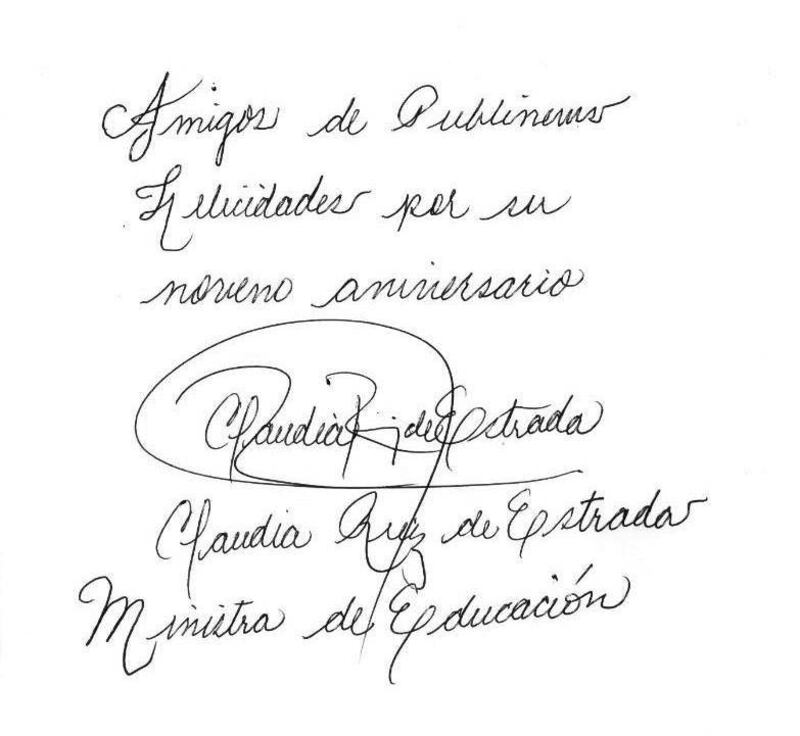 Amigos de Publinews
Felicidades por su
noveno aniversario
Claudia Ruiz de Estrada
Claudia Ruiz de Estrada
Ministra de Educación